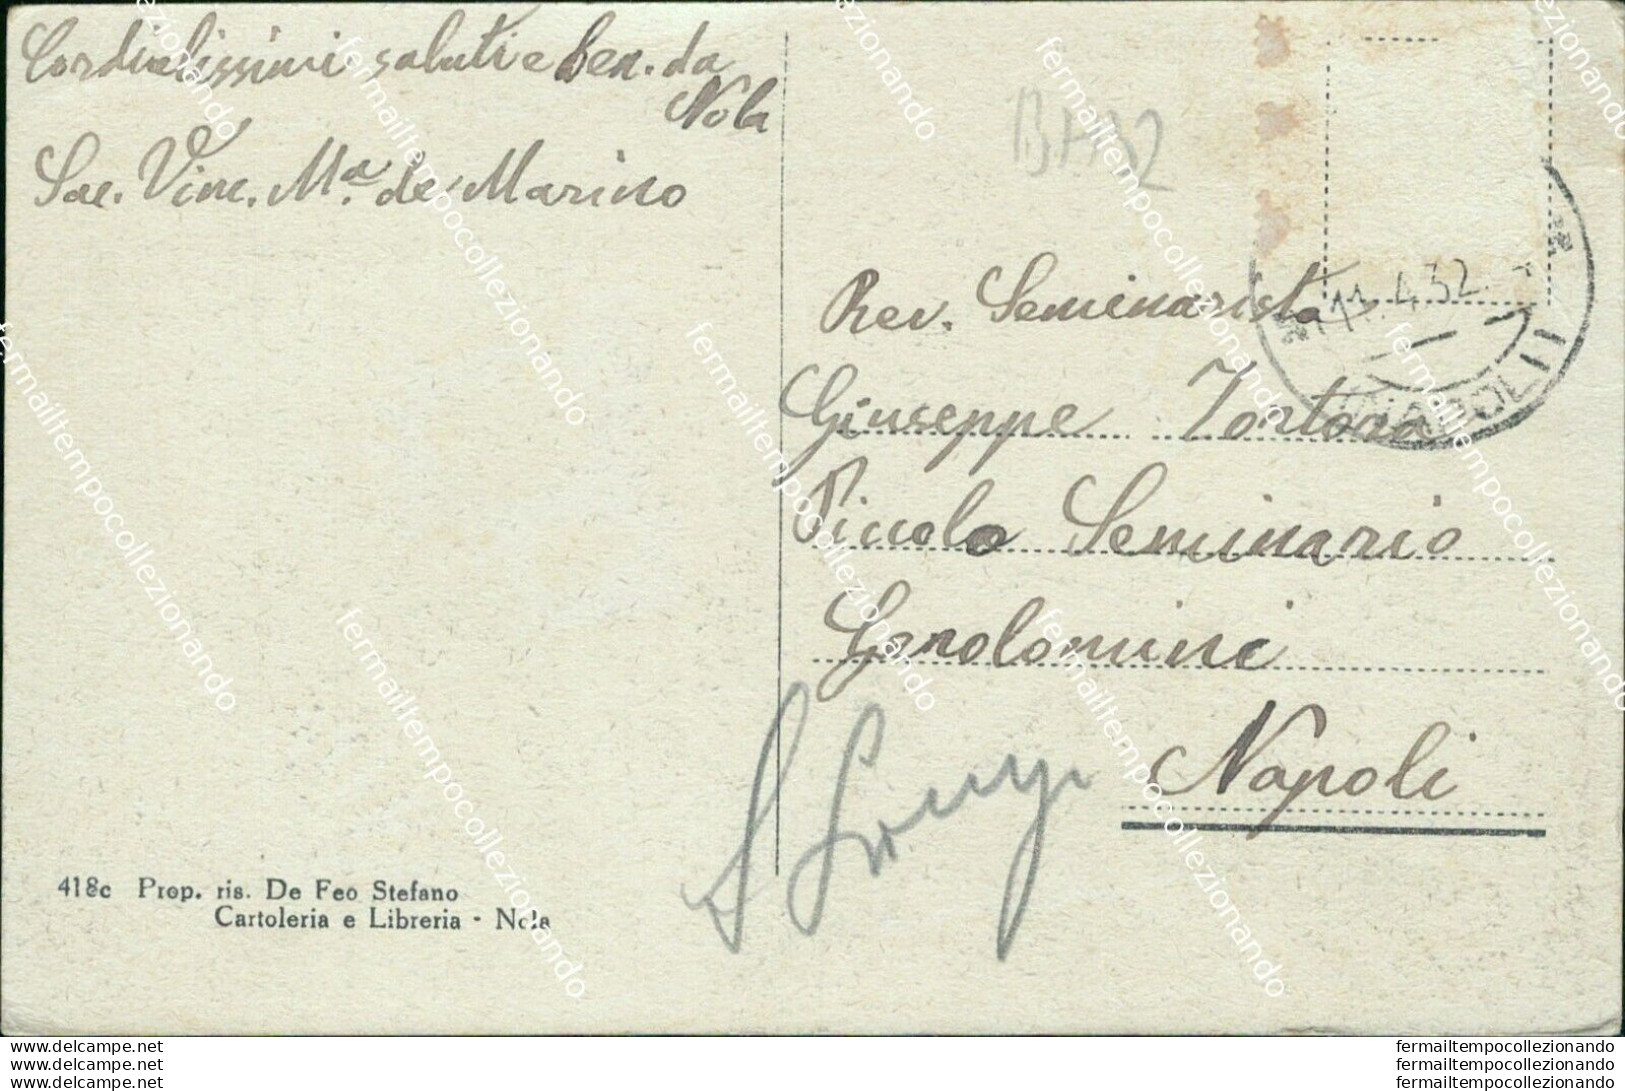 Cordialissimi saluti e ben. da
Nola
Sac. Vinc. Mª. de Marino
BA32
11.4.32.
NAPOLI
Rev. Seminarista
Giuseppe Tortora
Piccolo Seminario
Gerolomini
Napoli
418c Prop. ris. De Feo Stefano
Cartoleria e Libreria - Nola
fermailtempocollezionando
www.delcampe.net
www.delcampe.net
www.delcampe.net
fermailtempocollezionando
fermailtempocollezionando
fermailtempocollezionando